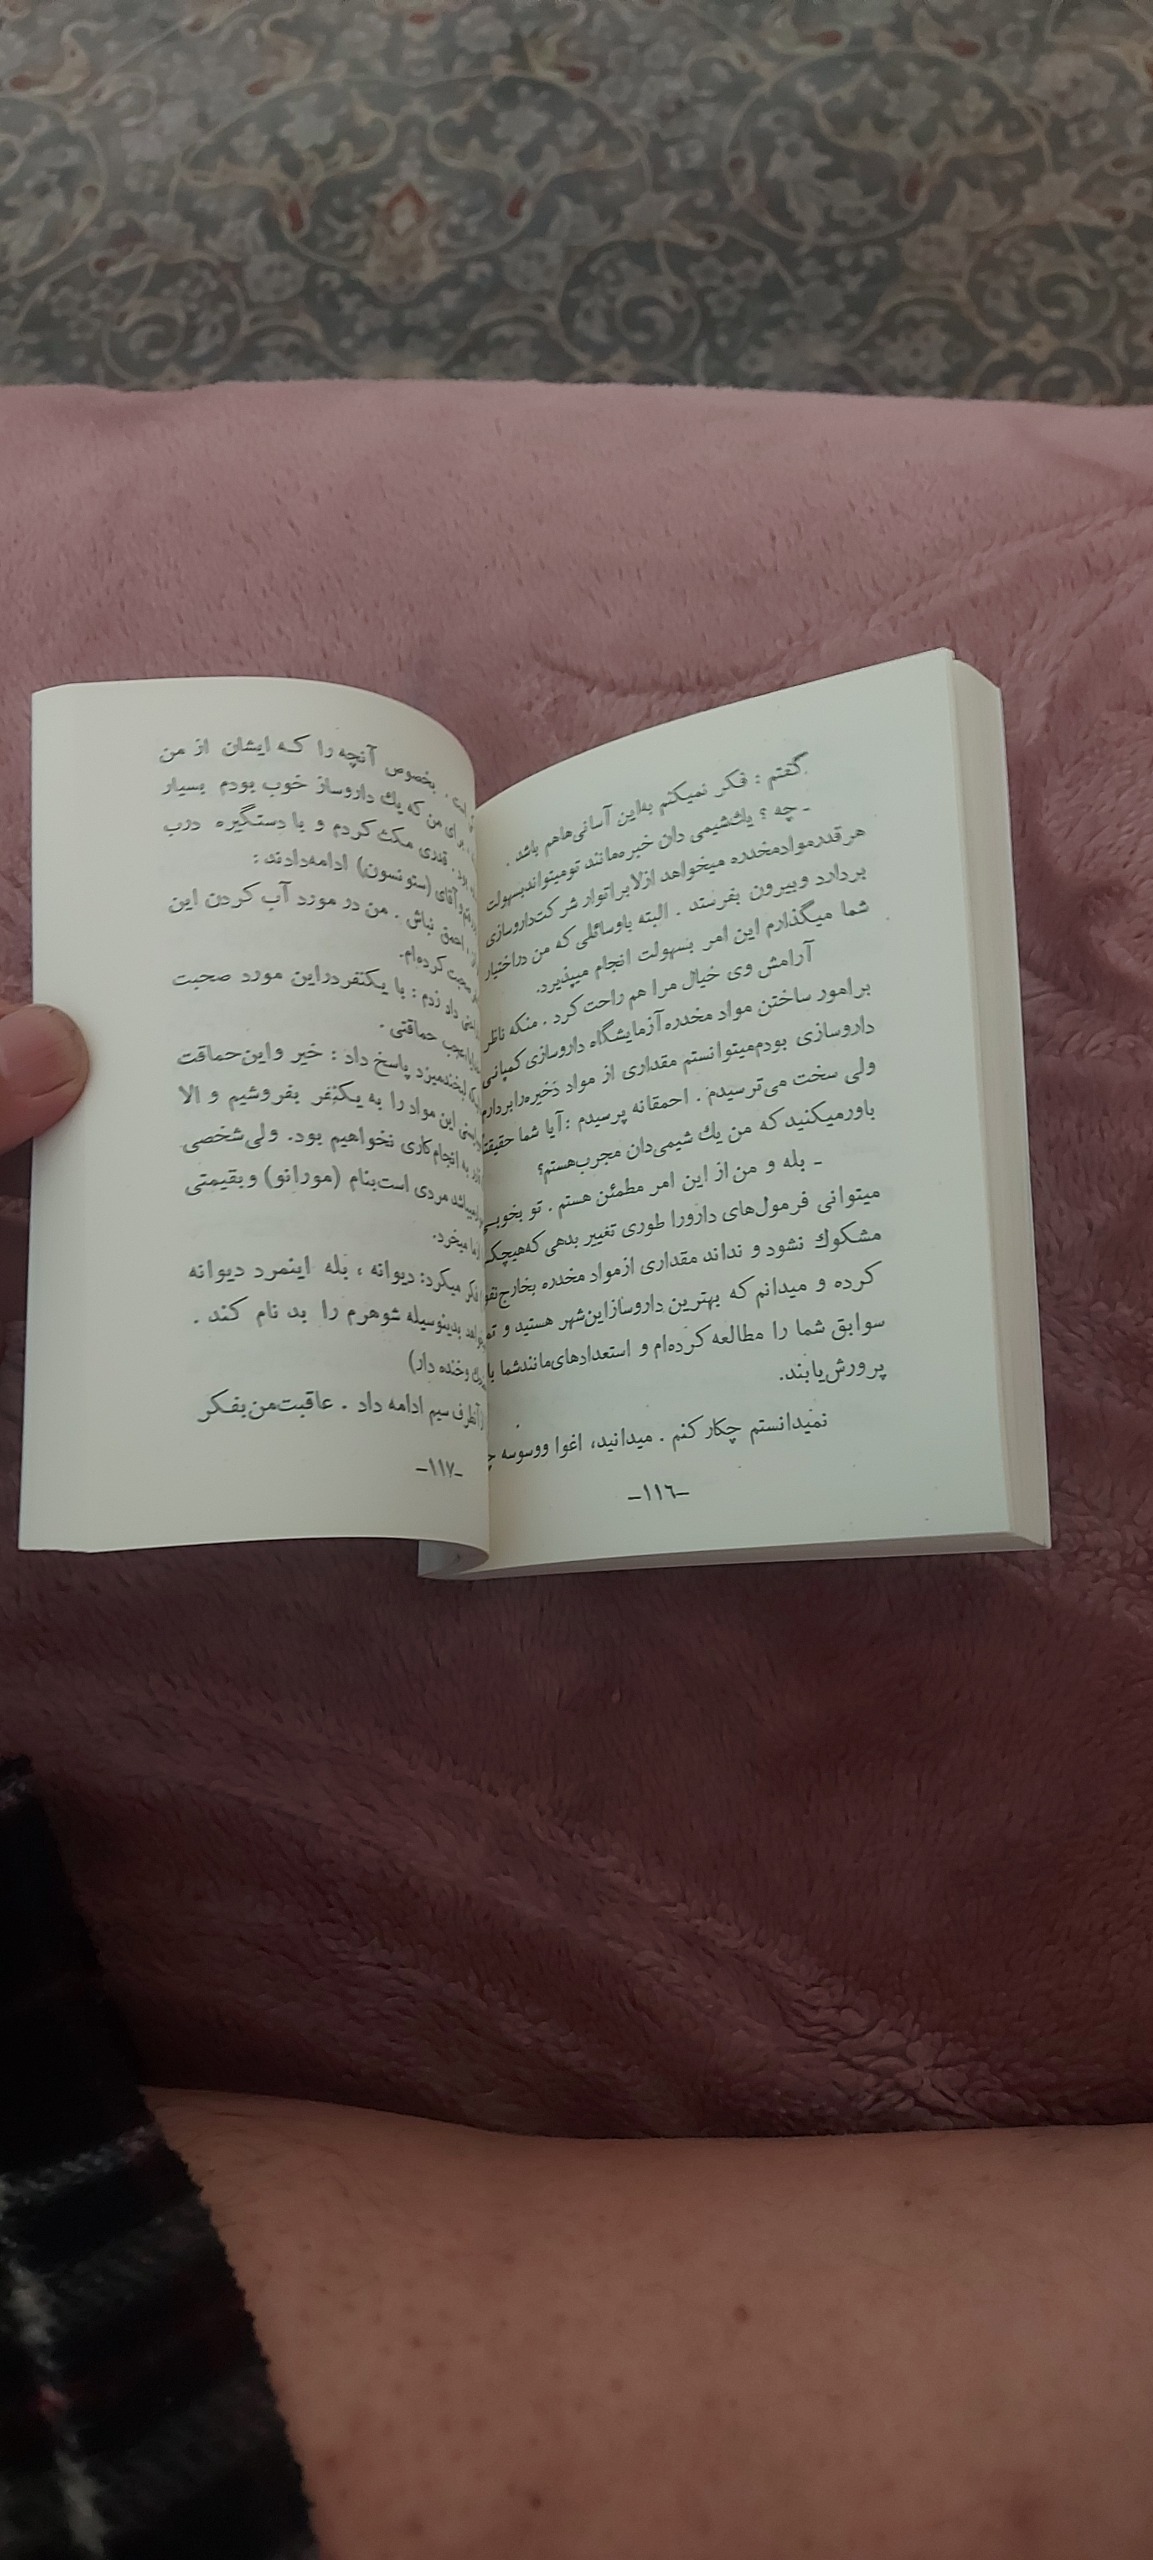 گفتم : فکر نمیکنم به‌این آسانی‌هاهم باشد .
- چه ؟ یك‌شیمی دان خبره‌مانند تومیتواندبسهولت
هرقدرموادمخدره میخواهد ازلابراتوار شرکت‌داروسازی
بردارد وبیرون بفرستد . البته باوسائلی که من دراختیار
شما میگذارم این امر بسهولت انجام میپذیرد.
آرامش وی خیال مرا هم راحت کرد . منکه ناظر
برامور ساختن مواد مخدره‌آزمایشگاه داروسازی‌کمپانی
داروسازی بودم‌میتوانستم مقداری از مواد ذخیره‌رابردارم
ولی سخت می‌ترسیدم . احمقانه پرسیدم : آیا شما حقیقتا
باورمیکنید که من یك شیمی‌دان مجرب‌هستم؟
- بله و من‌از این امر مطمئن هستم . تو بخوبی
میتوانی فرمول‌های دارورا طوری تغییر بدهی که‌هیچکـ
مشکوك نشود و نداند مقداری ازمواد مخدره بخارج
کرده و میدانم که بهترین داروسازاین‌شهر هستید و
سوابق شما را مطالعه کرده‌ام و استعدادهای‌مانندشما
پرورش‌یابند.
نمیدانستم چکار کنم . میدانید، اغوا ووسوسه
-۱۱٦-
است . بخصوص آنچه را کـه ایشان از من
برای من که یك داروساز خوب بودم بسیار
بود . قدری مکث کردم و با دستگیره درب
وآقای (ستونسون) ادامه‌دادند :
احمق نباش . من در مورد آب کردن این
صحبت کرده‌ام.
داد زدم : با یـکنفردراین مورد صحبت
عجب حماقتی .
لبخندمیزد پاسخ داد : خیر واین‌حماقت
این موادرا به یـکنفر بفروشیم و الا
به انجام‌کاری نخواهیم بود. ولی‌شخصی
مردی است‌بنام (مورانو) وبقیمتی
میخرد.
فکر میکرد: دیوانه ، بله اینمرد دیوانه
بدینوسیله شوهرم را بد نام کند .
وخنده دار)
ازآنطرف سیم ادامه داد . عاقبت‌من‌بفـکر
-۱۱۷-